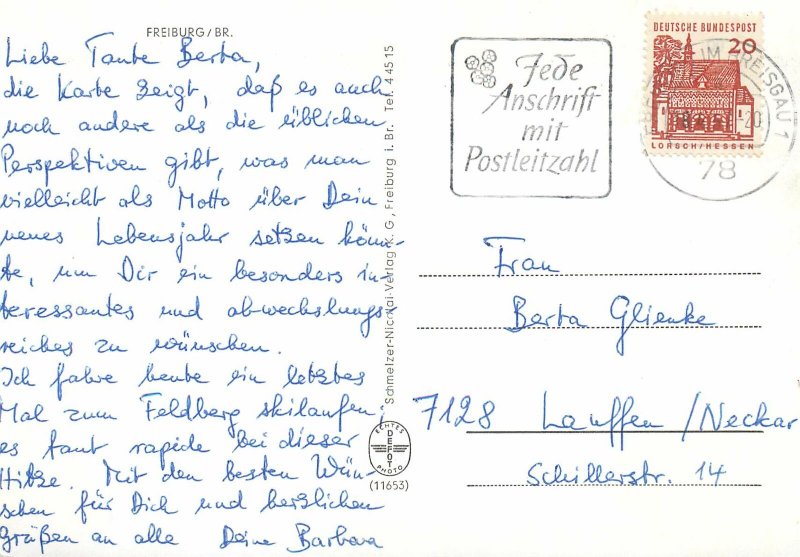 FREIBURG/BR.
Liebe Tante Berta,
die Karte zeigt, daß es auch
noch andere als die üblichen
Perspektiven gibt, was man
vielleicht als Motto über Dein
neues Lebensjahr setzen könn-
te, um Dir ein besonders in-
teressantes und ab-wechslungs-
reiches zu wünschen.
Ich fahre heute ein letztes
Mal zum Feldberg skilaufen;
es taut rapide bei dieser
Hitze. Mit den besten Wün-
schen für Dich und herzlichen
Grüßen an alle Deine Barbara
Schmelzer-Nicolai-Verlag K. G., Freiburg i. Br. Tel. 4 45 15
ECHTES
DEFOT
PHOTO
(11653)
Jede
Anschrift
mit
Postleitzahl
DEUTSCHE BUNDESPOST
20
LORSCH/HESSEN
IM BREISGAU 1
78
Frau
Berta Glienke
7128 Lauffen/Neckar
Schillerstr. 14